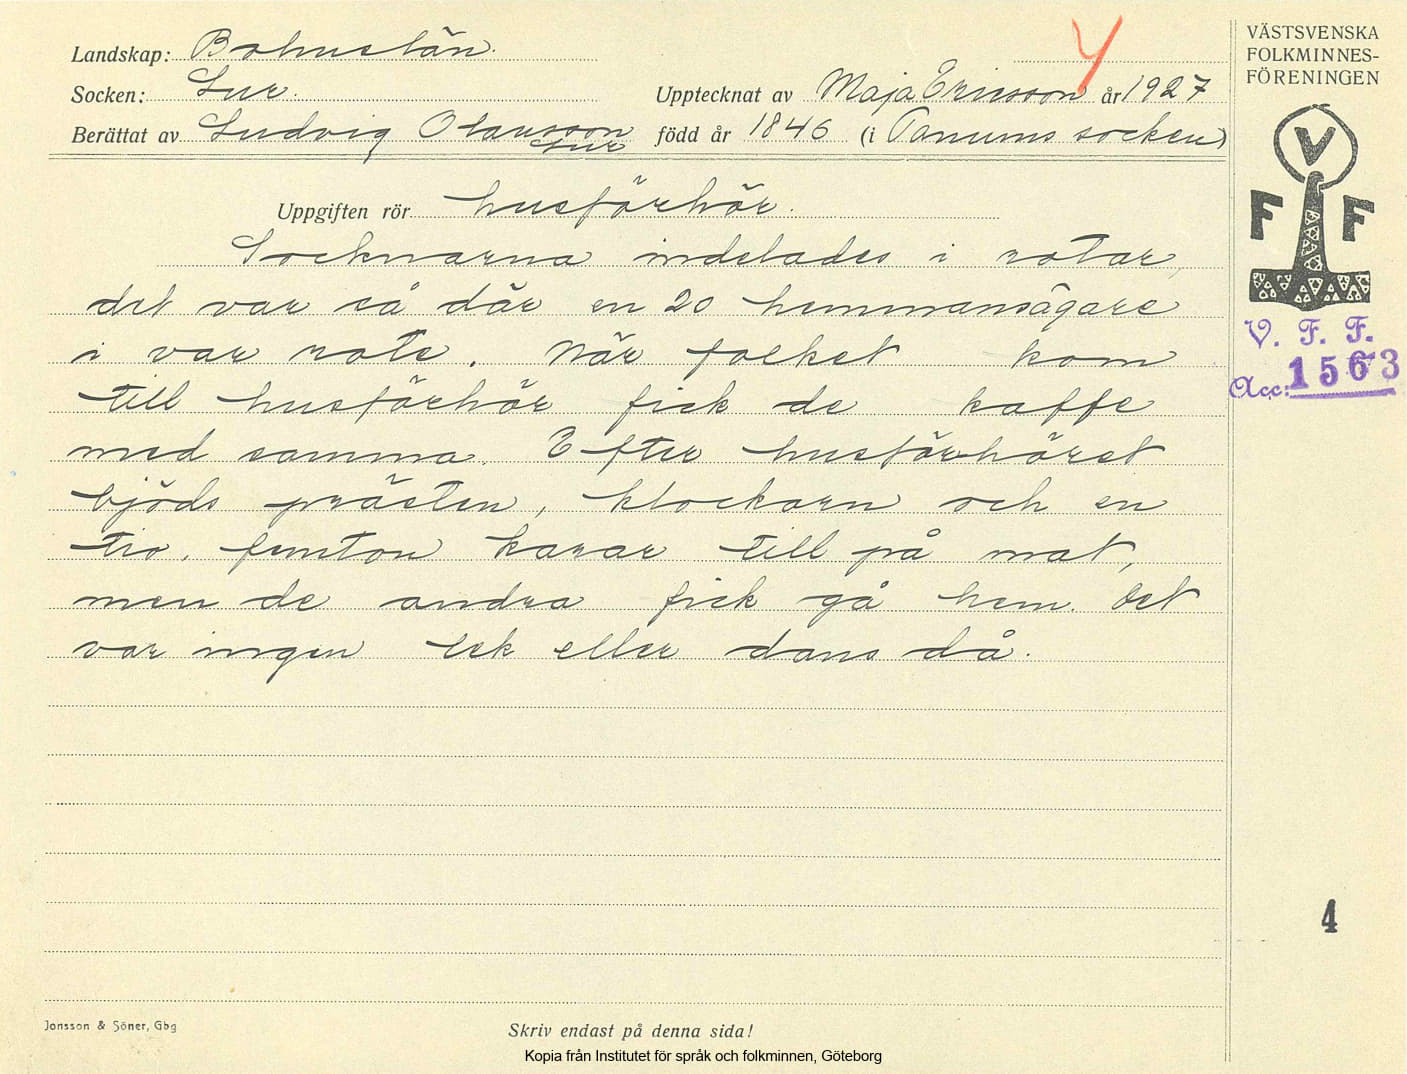 Y
VÄSTSVENSKA
FOLKMINNES-
FÖRENINGEN
Landskap: Bohuslän.
Socken: Lur.
Upptecknat av Maja Ericsson år 1927
Berättat av Ludvig Olausson
Lur
född år 1846 (i Tanums socken)
V
F F
V. F. F.
Acc: 1563
Uppgiften rör husförhör.
Socknarna indelades i rotar,
det var så där en 20 hemmansägare
i var rote. När folket kom
till husförhör fick de kaffe
med samma. Efter husförhöret
bjöds prästen, klockarn och en
tio, femton karar till på mat,
men de andra fick gå hem. Det
var ingen lek eller dans då.
4
Jonsson & Söner, Gbg
Skriv endast på denna sida!
Kopia från Institutet för språk och folkminnen, Göteborg